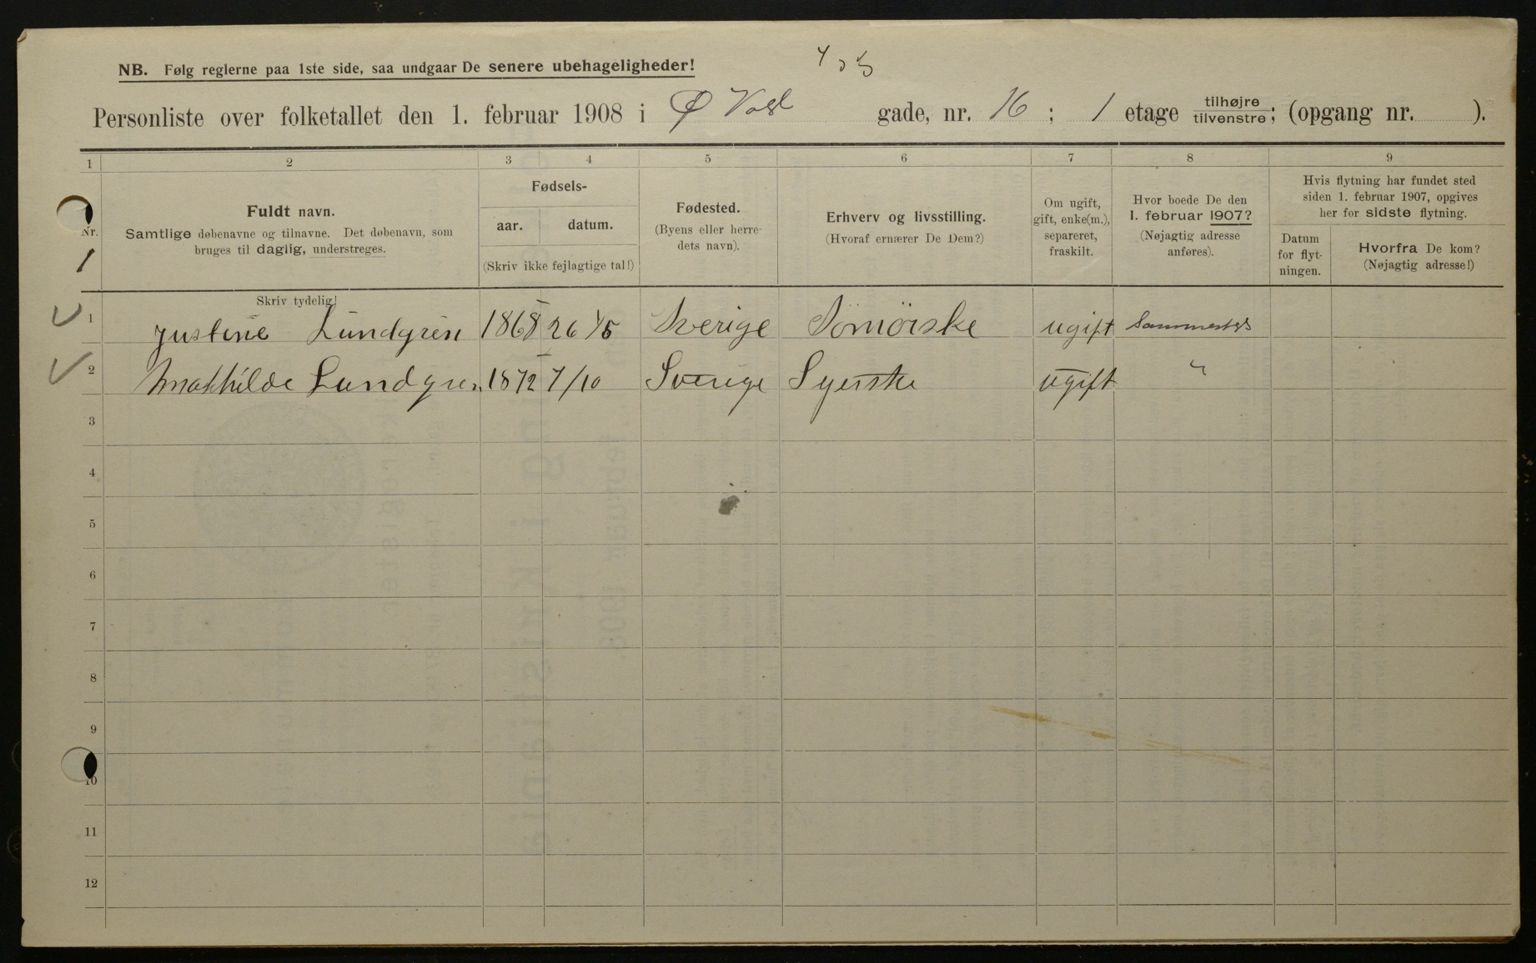 405
NB. Følg reglerne paa 1ste side, saa undgaar De senere ubehageligheder!
Personliste over folketallet den 1. februar 1908 i Ø Vold gade, nr. 16; 1 etage tilhøjre tilvenstre; (opgang nr. ).
1 2 3 4 5 6 7 8 9
Nr.
1
Fuldt navn.
Samtlige døbenavne og tilnavne. Det døbenavn, som
bruges til daglig, understreges.
Skriv tydelig!
Fødsels-
aar. datum.
(Skriv ikke fejlagtige tal!)
Fødested.
(Byens eller herre-
dets navn).
Erhverv og livsstilling.
(Hvoraf ernærer De Dem?)
Om ugift,
gift, enke(m.),
separeret,
fraskilt.
Hvor boede De den
1. februar 1907?
(Nøjagtig adresse
anføres).
Hvis flytning har fundet sted
siden 1. februar 1907, opgives
her for sidste flytning.
Datum
for flyt-
ningen.
Hvorfra De kom?
(Nøjagtig adresse!)
1 Justine Lundgren 1868 26 Sverige ugift Sammesteds
2 Mathilde Lundgren 1872 7/10 Sverige Syerske ugift "
3
4
5
6
7
8
9
10
11
12